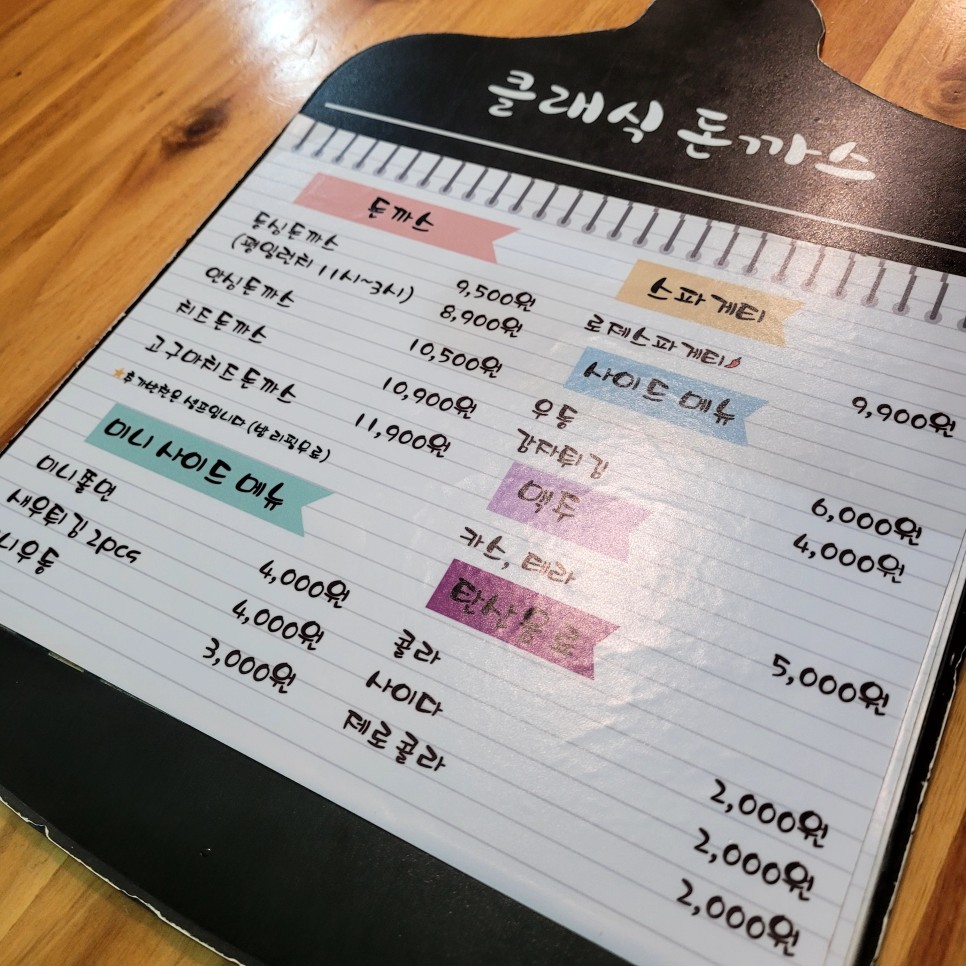 클래식 돈까스
돈까스
등심돈까스 9,500원
(평일런치 11시~3시) 8,900원
안심돈까스 10,500원
치즈돈까스 10,900원
고구마치즈돈까스 11,900원
추가반찬은 셀프입니다 (밥 리필무료)
미니 사이드 메뉴
미니쫄면 4,000원
새우튀김 2pcs 4,000원
니우동 3,000원
스파게티
로제스파게티 9,900원
사이드 메뉴
우동 6,000원
감자튀김 4,000원
맥주
카스, 테라 5,000원
탄산음료
콜라 2,000원
사이다 2,000원
제로콜라 2,000원